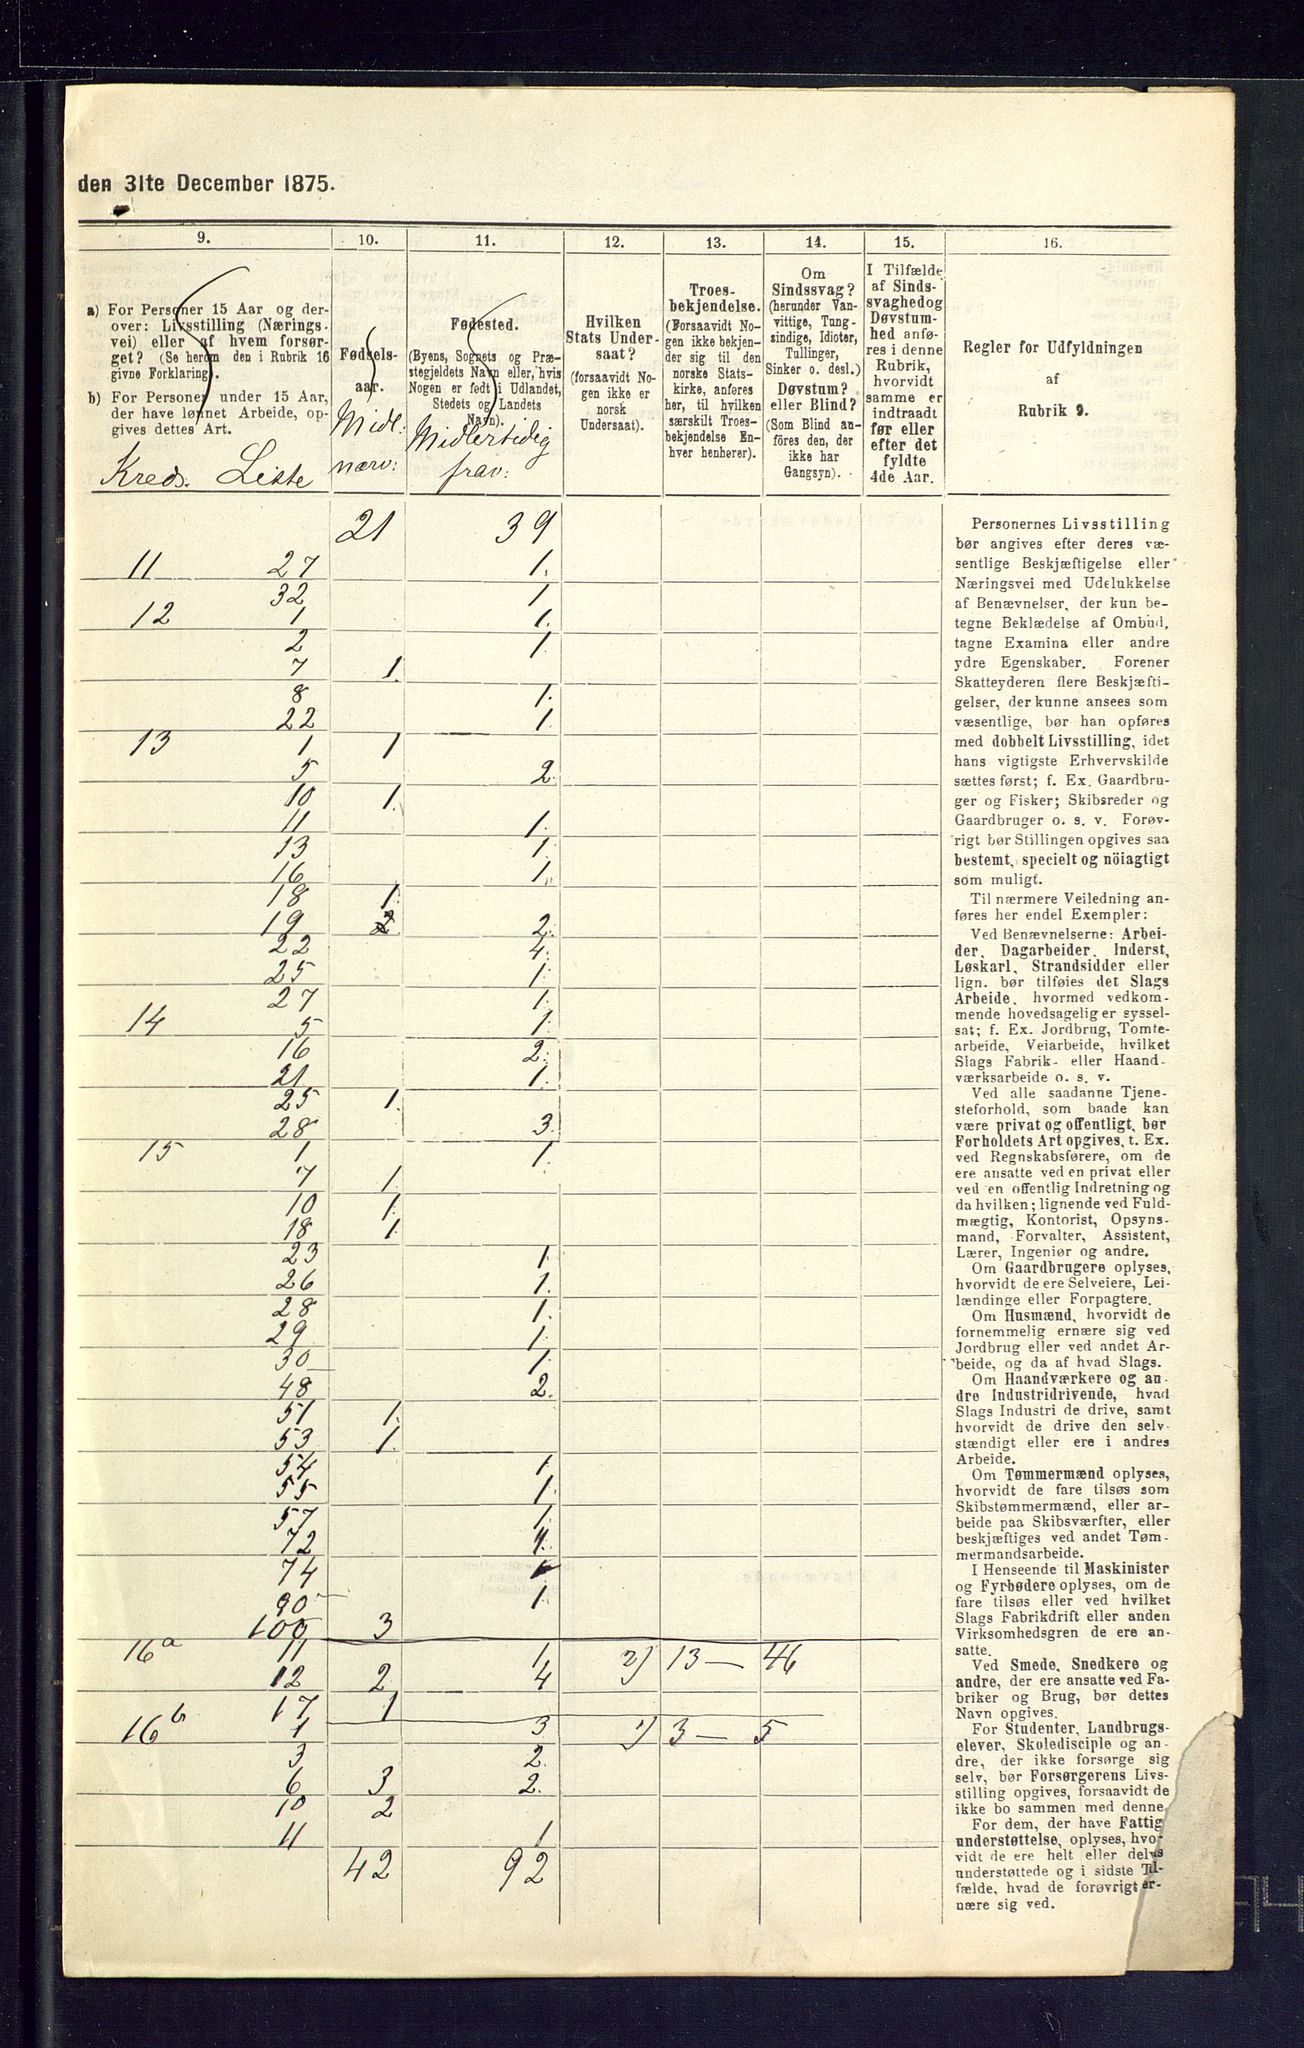 den 31te December 1875.
9. 10. 11. 12. 13. 14. 15. 16.
a) For Personer 15 Aar og der-
over: Livsstilling (Nærings-
vei) eller af hvem forsør-
get? (Se herom den i Rubrik 16
givne Forklaring).
b) For Personer under 15 Aar,
der have lønnet Arbeide, op-
gives dettes Art.
Kreds. Liste
Fødsels-
aar.
Midl.
nærv:
Fødested.
(Byens, Sognets og Præ-
stegjeldets Navn eller, hvis
Nogen er født i Udlandet,
Stedets og Landets
Navn).
Midlertidig
frav:
Hvilken
Stats Under-
saat?
(forsaavidt No-
gen ikke er
norsk
Undersaat).
Troes-
bekjendelse.
(Forsaavidt No-
gen ikke bekjen-
der sig til den
norske Stats-
kirke, anføres
her, til hvilken
særskilt Troes-
bekjendelse En-
hver henhører).
Om
Sindssvag?
(herunder Van-
vittige, Tung-
sindige, Idioter,
Tullinger,
Sinker o. desl.)
Døvstum?
eller Blind?
(Som Blind an-
föres den, der
ikke har
Gangsyn).
I Tilfælde
af Sinds-
svaghed og
Døvstum-
hed anfø-
res i denne
Rubrik,
hvorvidt
samme er
indtraadt
før eller
efter det
fyldte
4de Aar.
Regler for Udfyldningen
af
Rubrik 9.
21 39
11 27 1.
32 1
12 1 1.
2 1
7 1.
8 1.
22 1.
13 1 1
5 2.
10 1.
11 1.
13 1.
16 1.
18 1.
19 2 2.
22 4.
25 1.
27 1.
14 5 1.
16 2.
21 1.
25 1.
28 3.
15 1 1.
7 1.
10 1.
18 1.
23 1.
26 1.
28 1.
29 1.
30 1.
48 2.
51 1.
53 1.
54 1.
55 1.
57 1.
72 1.
74 1
90 1.
100 3
16a 11 1 2) 13 — 46
12 2 4
17 1
16b 1 3 1) 3 — 5
3 2.
6 3 2.
10 2
11 1
42 92
Personernes Livsstilling
bør angives efter deres væ-
sentlige Beskjæftigelse eller
Næringsvei med Udelukkelse
af Benævnelser, der kun be-
tegne Beklædelse af Ombud,
tagne Examina eller andre
ydre Egenskaber. Forener
Skatteyderen flere Beskjæfti-
gelser, der kunne ansees som
væsentlige, bør han opføres
med dobbelt Livsstilling, idet
hans vigtigste Erhvervskilde
sættes først; f. Ex. Gaardbru-
ger og Fisker; Skibsreder og
Gaardbruger o. s. v. Forøv-
rigt bør Stillingen opgives saa
bestemt, specielt og nöiagtigt
som muligt.
Til nærmere Veiledning an-
føres her endel Exempler:
Ved Benævnelserne: Arbei-
der, Dagarbeider, Inderst,
Løskarl, Strandsidder eller
lign. bør tilføies det Slags
Arbeide, hvormed vedkom-
mende hovedsagelig er syssel-
sat; f. Ex. Jordbrug, Tomte-
arbeide, Veiarbeide, hvilket
Slags Fabrik- eller Haand-
værksarbeide o. s. v.
Ved alle saadanne Tjene-
steforhold, som baade kan
være privat og offentligt, bør
Forholdets Art opgives, t. Ex.
ved Regnskabsførere, om de
ere ansatte ved en privat eller
ved en offentlig Indretning og
da hvilken; lignende ved Fuld-
mægtig, Kontorist, Opsyns-
mand, Forvalter, Assistent,
Lærer, Ingeniør og andre.
Om Gaardbrugere oplyses,
hvorvidt de ere Selveiere, Lei-
lændinge eller Forpagtere.
Om Husmænd, hvorvidt de
fornemmelig ernære sig ved
Jordbrug eller ved andet Ar-
beide, og da af hvad Slags.
Om Haandværkere og an-
dre Industridrivende, hvad
Slags Industri de drive, samt
hvorvidt de drive den selv-
stændigt eller ere i andres
Arbeide.
Om Tømmermænd oplyses,
hvorvidt de fare tilsøs som
Skibstømmermænd, eller ar-
beide paa Skibsværfter, eller
beskjæftiges ved andet Tøm-
mermandsarbeide.
I Henseende til Maskinister
og Fyrbødere oplyses, om de
fare tilsøs eller ved hvilket
Slags Fabrikdrift eller anden
Virksomhedsgren de ere an-
satte.
Ved Smede, Snedkere og
andre, der ere ansatte ved Fa-
briker og Brug, bør dettes
Navn opgives.
For Studenter, Landbrugs-
elever, Skoledisciple og an-
dre, der ikke forsørge sig
selv, bør Forsørgerens Livs-
stilling opgives, forsaavidt de
ikke bo sammen med denne.
For dem, der have Fattig-
understøttelse, oplyses, hvor-
vidt de ere helt eller delvis
understøttede og i sidste Til-
fælde, hvad de forøvrigt er-
nære sig ved.